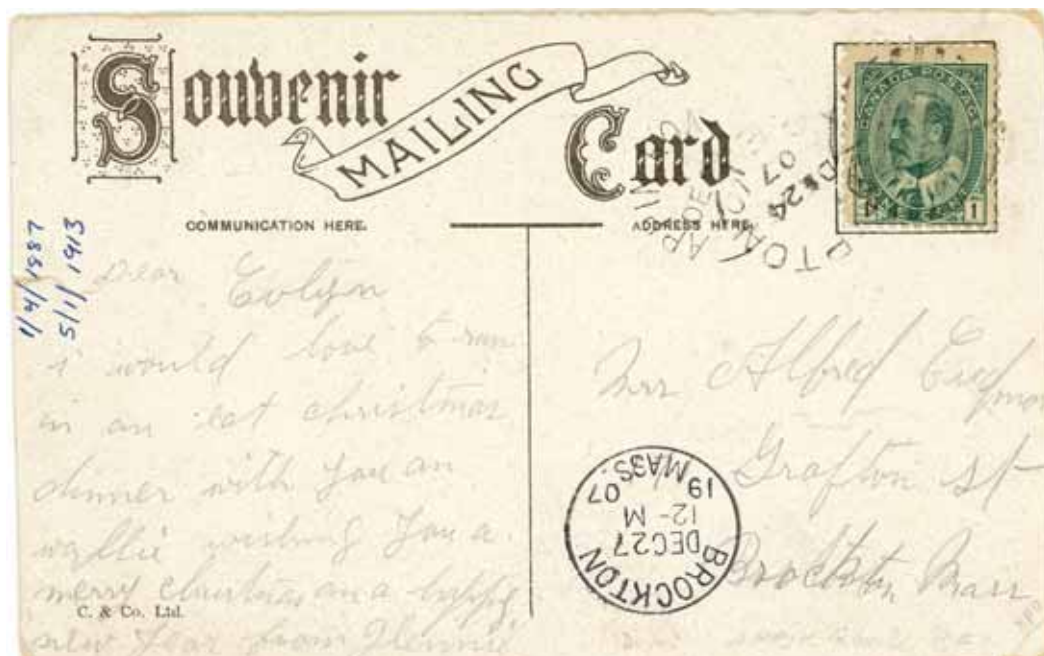 Souvenir
MAILING
Card
CANADA POSTAGE
1 1
DE 24
07
COMMUNICATION HERE.
ADDRESS HERE.
1/4/1987
5/1/1913
Dear Evlyn
i would love to run
in an eat christmas
dinner with you an
wallie wishing you a
merry christmas an a happy
new year from
C. & Co. Ltd.
Mrs Alfred
Grafton St
Brockton Mass
BROCKTON
DEC 27
12-M
19 07
MASS.